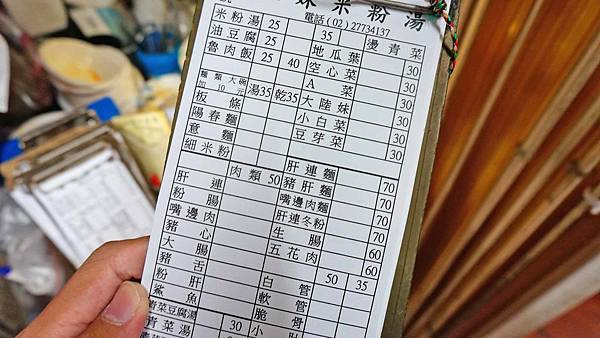 妹米粉湯
電話(02)27734137
米粉湯 25 35 燙青菜
油豆腐 25 地瓜葉 30
魯肉飯 25 40 空心菜 30
麵類大碗加10元 湯35 乾35 A菜 30
板條 大陸妹 30
陽春麵 小白菜 30
意麵 豆芽菜 30
細米粉
肉類 50 肝連麵 70
肝連 豬肝麵 70
粉腸 嘴邊肉麵 70
嘴邊肉 肝連冬粉 70
豬心 生腸 60
大腸 五花肉 60
豬舌 50 35
粉肝 白管
鯊魚 軟管
青菜豆腐湯 脆骨
青菜湯 30 小肚